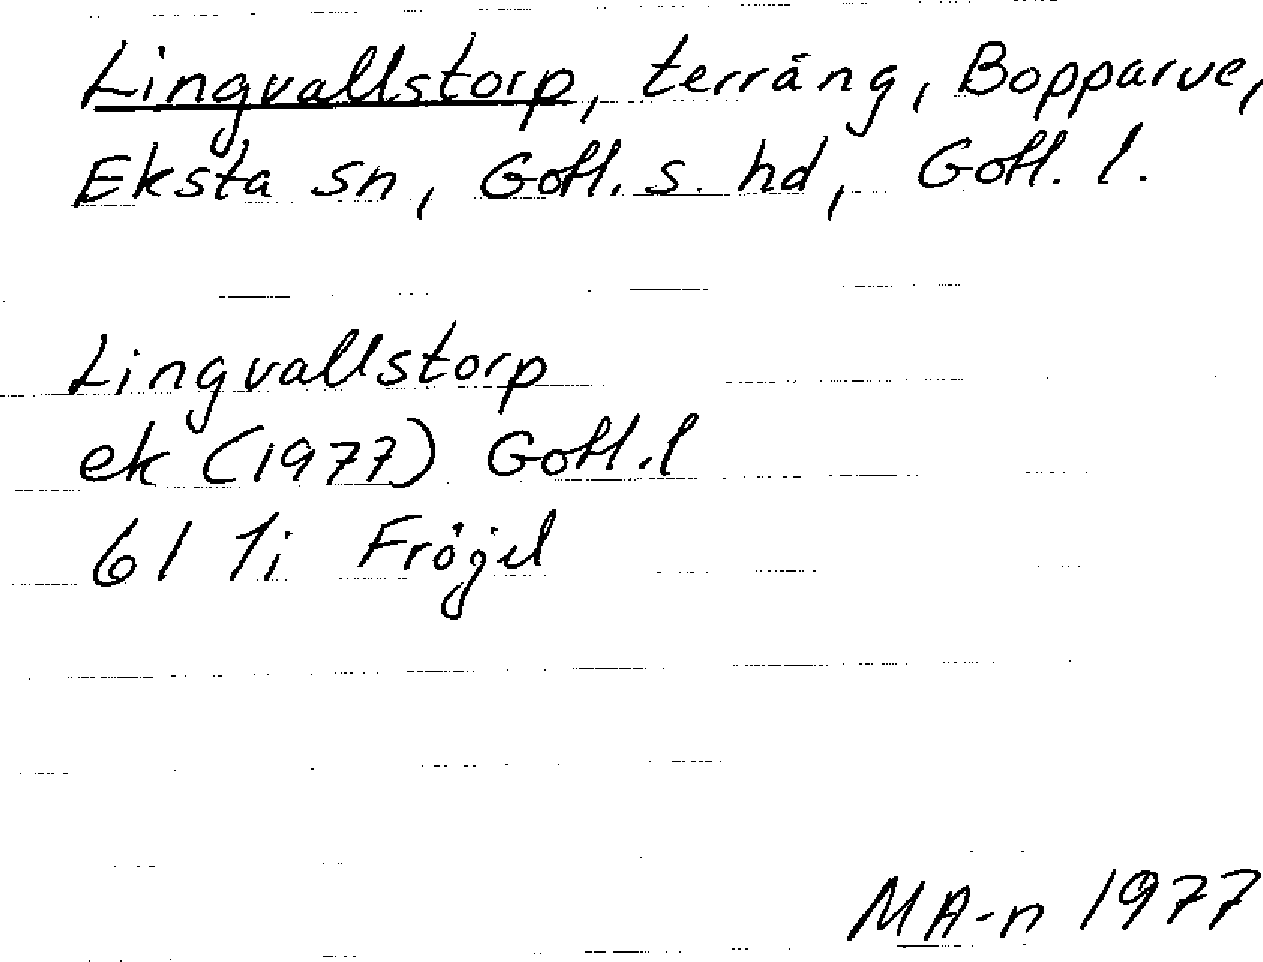 Lingvallstorp, terräng, Bopparve,
Eksta sn, Gotl. s. hd, Gotl. l.
Lingvallstorp
ek (1977) Gotl. l
6I 1i Fröjel
MA-n 1977